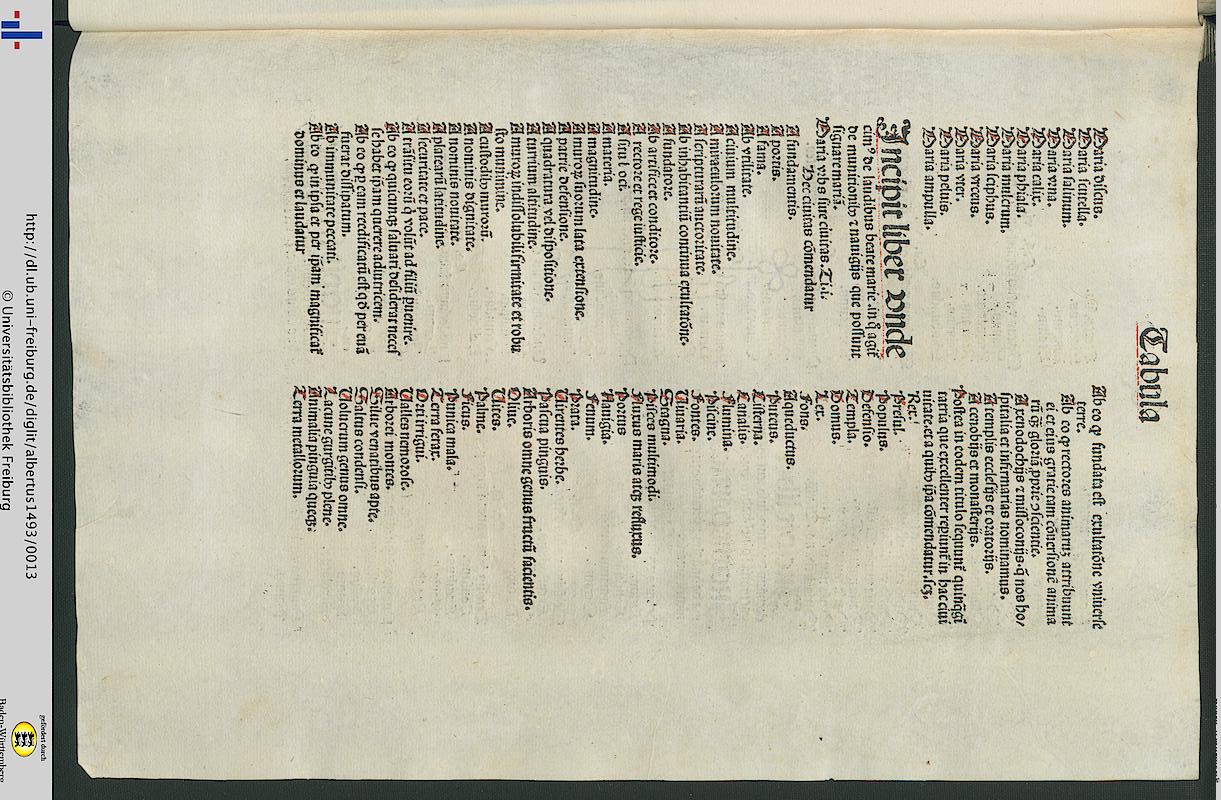 Tabula
Maria discus.
Maria scutella.
Maria salinum.
Maria vrna.
Maria calix.
Maria phiala.
Maria mulctrum.
Maria sciphus.
Maria vrceus.
Maria vter.
Maria peluis.
Maria ampulla.
Incipit liber vnde
cimꝰ de laudibus beate marie. in q̄ agit̄
de munitionibꝫ ⁊ nauigijs que possunt
signare mariā.
Maria vrbs siue ciuitas. Ti.i.
Hec ciuitas cōmendatur
A fundamentis.
A portis.
A fama.
Ab vtilitate.
A ciuium multitudine.
A miraculorum nouitate.
A scripturarū auctoritate.
Ab inhabitantiū continua exultatōne.
A fundatore.
Ab artifice et conditore.
A rectore et rege iusticie.
A situ loci.
A materia.
A magnitudine.
A muroꝝ suorum lata extensione.
A patrie defensione.
A quadratura vel dispositione.
A turrium altitudine.
A muroꝝ indissolubili firmitate et robu
sto munimine.
A custodibꝫ murorū.
A nominis dignitate.
A nominis nouitate.
A platearū latitudine.
A securitate et pace.
A trāsitu eorū q̄ volūt ad filiū puenire.
Ab eo ꝙ quicunqꝫ saluari desiderat necess
se habet ipam querere adiutricem.
Ab eo ꝙ p eam reedificatū est qd̕ per euā
fuerat dissipatum.
Ab immunitate peccati.
Ab eo ꝙ in ipsa et per ipam magnificat̕
dominus et laudatur
Ab eo ꝙ fundata est exultatōne vniuerse
terre.
Ab eo ꝙ rectores animaruꝫ attribuunt
ei et eius gratie tam cōuersionē anima
rū ꝙ̄ gloriā pprie ↄscientie.
A xenodochijs ⁊ misoconijs. q̄ nos ho/
spitalia et infirmarias nominamus.
A templis ecclesijs et oratorijs.
A cenobijs et monasterijs.
Postea in eodem titulo sequunt̄ quinq̄gi
taria que excellenter repiunt̄ in hac ciui
tate. et a quibꝫ ipa cōmendatur. scꝫ.
Rex.
Presul.
Populus.
Defensio.
Templa.
Domus.
Lex.
Fons.
Aqueductus.
Puteus.
Cisterna.
Canalis.
Flumina.
Fontes.
Piscine.
Viuaria.
Stagna.
Pisces multimodi.
Fluxus maris atqꝫ refluxus.
Portus
Nauigia.
Fenum.
Prata.
Uirentes herbe.
Pascua pinguis.
Arboris omne genus fructū facientis.
Oliue.
Uites.
Palme.
Ficus.
Punica mala.
Terra ferax.
Orti irrigui.
Ualles nemorose.
Arbores montes.
Silue venatibus apte.
Saltus condensi.
Uolucrum genus omne.
Lacune gurgitibꝫ plene.
Animalia pinguia queqꝫ.
Terra metallorum.
http://dl.ub.uni-freiburg.de/diglit/albertus1493/0013
© Universitätsbibliothek Freiburg
gefördert durch
Baden-Württemberg